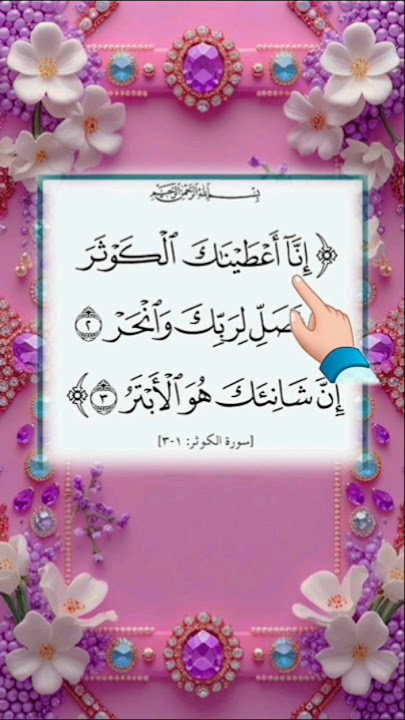 بِسْمِ ٱللَّهِ ٱلرَّحْمَٰنِ ٱلرَّحِيمِ
﴿ إِنَّآ أَعْطَيْنَٰكَ ٱلْكَوْثَرَ
فَصَلِّ لِرَبِّكَ وَٱنْحَرْ ٢
إِنَّ شَانِئَكَ هُوَ ٱلْأَبْتَرُ ٣ ﴾
[سورة الكوثر: ١-٣]